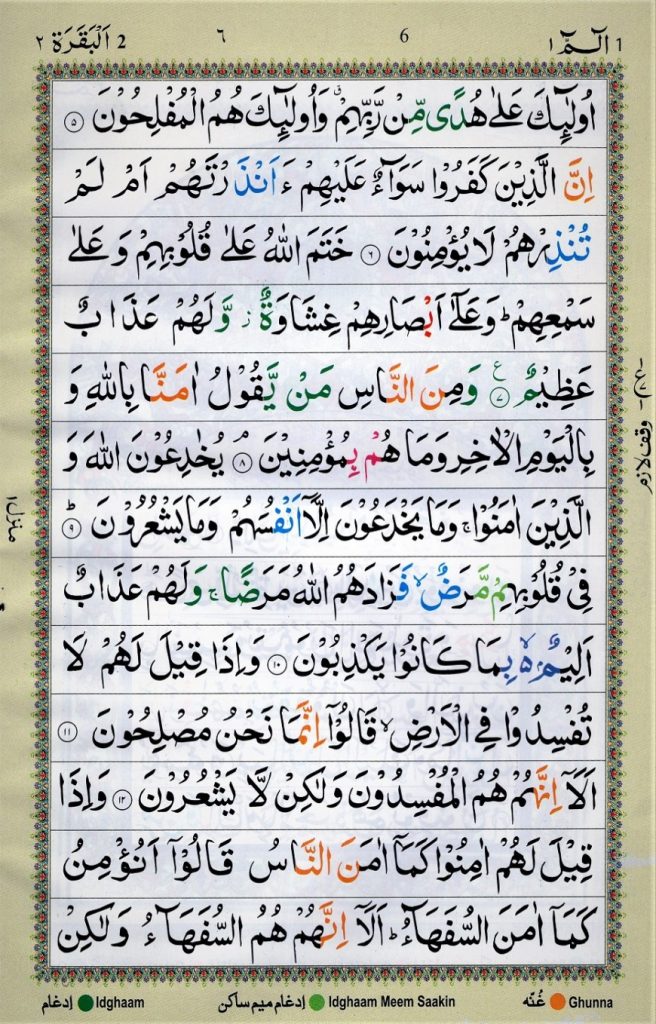 1 الٓمّٓ ١
6
٦
2 اَلْبَقَرَة ٢
اُولٰٓئِكَ عَلٰى هُدًى مِّنْ رَّبِّهِمْ ۙ وَاُولٰٓئِكَ هُمُ الْمُفْلِحُوْنَ ۝٥
اِنَّ الَّذِيْنَ كَفَرُوْا سَوَآءٌ عَلَيْهِمْ ءَاَنْذَرْتَهُمْ اَمْ لَمْ
تُنْذِرْهُمْ لَا يُؤْمِنُوْنَ ۝٦ خَتَمَ اللّٰهُ عَلٰى قُلُوْبِهِمْ وَعَلٰى
سَمْعِهِمْ ؕ وَعَلٰٓى اَبْصَارِهِمْ غِشَاوَةٌ ز وَّلَهُمْ عَذَابٌ
عَظِيْمٌ ع ۝٧ وَمِنَ النَّاسِ مَنْ يَّقُوْلُ اٰمَنَّا بِاللّٰهِ وَ
بِالْيَوْمِ الْاٰخِرِ وَمَا هُمْ بِمُؤْمِنِيْنَ ۘ ۝٨ يُخٰدِعُوْنَ اللّٰهَ وَ
الَّذِيْنَ اٰمَنُوْا ۚ وَمَا يَخْدَعُوْنَ اِلَّآ اَنْفُسَهُمْ وَمَا يَشْعُرُوْنَ ؕ ۝٩
فِيْ قُلُوْبِهِمْ مَّرَضٌ ۙ فَزَادَهُمُ اللّٰهُ مَرَضًا ۚ وَلَهُمْ عَذَابٌ
اَلِيْمٌ ۢ ۙ بِمَا كَانُوْا يَكْذِبُوْنَ ۝١٠ وَاِذَا قِيْلَ لَهُمْ لَا
تُفْسِدُوْا فِي الْاَرْضِ ۙ قَالُوْٓا اِنَّمَا نَحْنُ مُصْلِحُوْنَ ۝١١
اَلَآ اِنَّهُمْ هُمُ الْمُفْسِدُوْنَ وَلٰكِنْ لَّا يَشْعُرُوْنَ ۝١٢ وَاِذَا
قِيْلَ لَهُمْ اٰمِنُوْا كَمَآ اٰمَنَ النَّاسُ قَالُوْٓا اَنُؤْمِنُ
كَمَآ اٰمَنَ السُّفَهَآءُ ؕ اَلَآ اِنَّهُمْ هُمُ السُّفَهَآءُ وَلٰكِنْ
ع ٧
وقف لازم
منزل ١
غُنّه Ghunna
إدغام ميم ساكن Idghaam Meem Saakin
إدغام Idghaam